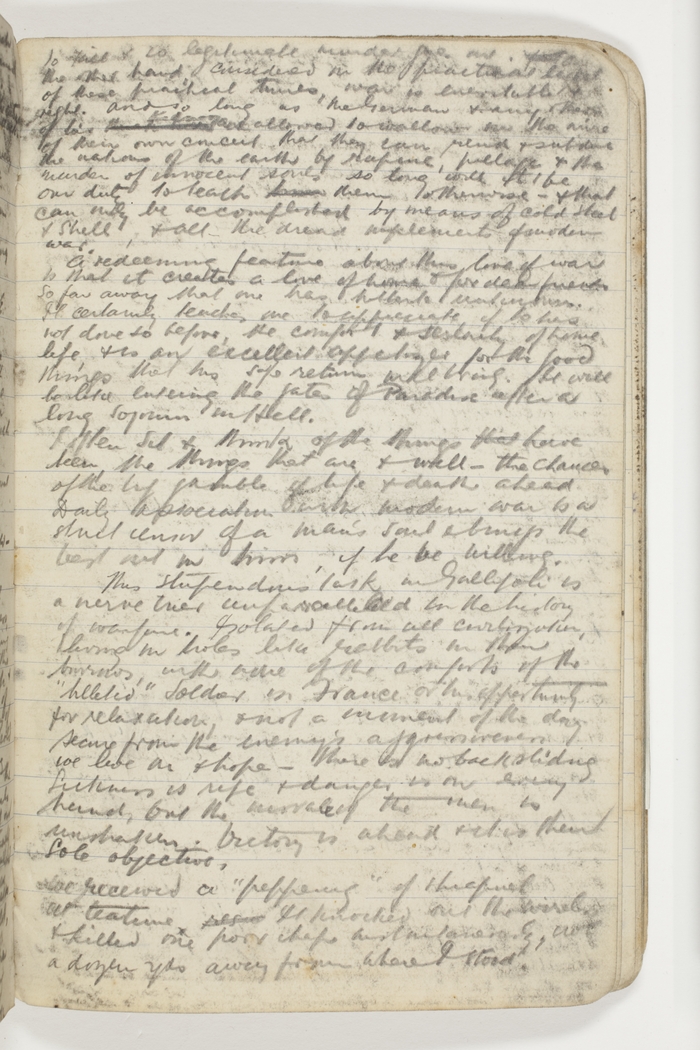 to kill & so legitimate murder
the other hand considered in the practical light
of these practical times, war is inevitable &
right. and so long as the German & many others
of his allowed to wallow in the mire
of their own conceit that they can rend & subdue
the nations of the earth by rapine, pillage & the
murder of innocent souls so long will it be
our duty to teach them otherwise - & that
can only be accomplished by means of cold steel
& shell, & all the dread implements of modern
war.
A redeeming feature about this love of war
is that it creates a love of home & dear friends
so far away that one has hitherto
It certainly teaches one to appreciate if he has
not done so before, the comfort & of home
life & is an excellent appetizer for the good
things that his safe return will bring. It will
be like entering the gates of Paradise after a
long sojourn in Hell.
I often sit & think of the things that have
been, the things that are & will - the chances
of the big gamble of life & death ahead
Daily association with modern war is a
strict censor of a man's soul & brings the
best out in him, if he be willing.
This stupendous task in Gallipoli is
a nerve trier unparalleled in the history
of warfare. Isolated from all civilization,
living in holes like rabbits in their
burrows, with none of the comforts of the
"billeted" soldier in France or his opportunity
for relaxation, & not a moment of the day
secure from the enemy's aggressiveness
we live on & hope - there is no backsliding
Sickness is rife & danger is on every
hand, but the morale of the men is
unshaken. Victory is ahead & it is their
sole objective.
We received a "peppering" of shrapnel
at teatime It knocked out the wireless
& killed one poor chap instantaneously, not
a dozen yds away from where I stood.